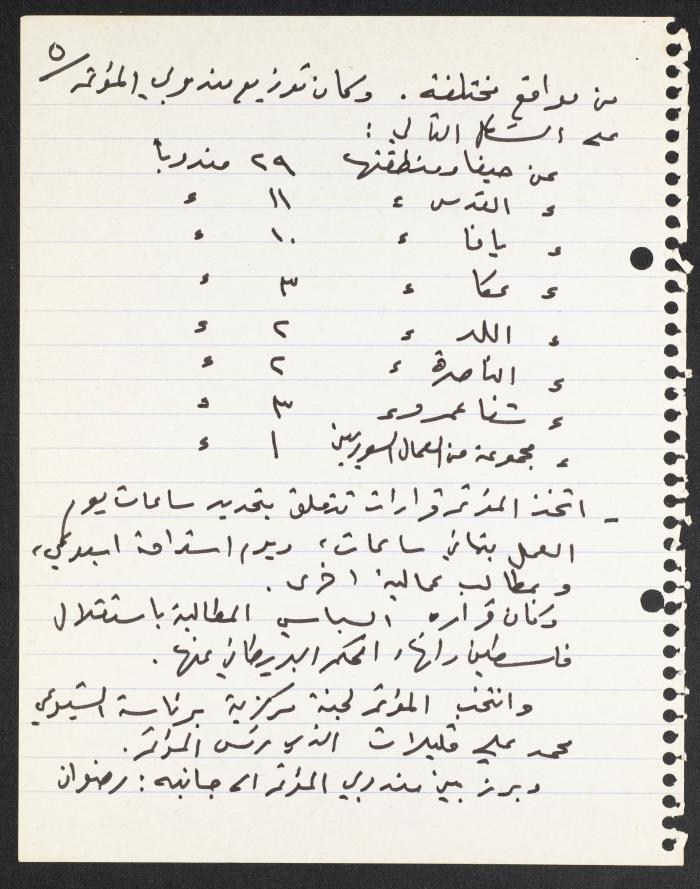 ٥
من مواقع مختلفة. وكان توزيع مندوبي المؤتمر
على الشكل التالي:
من حيفا ومنطقتها ٢٩ مندوبا
ء القدس ء ١١ ء
ء يافا ء ١٠ ء
ء عكا ء ٣ ء
ء اللد ء ٢ ء
ء الناصرة ء ٢ ء
ء شفا عمرو ء ٣ ء
ء مجموعة من العمال السوريين ١ ء
- اتخذ المؤتمر قرارات تتعلق بتحديد ساعات يوم
العمل بثماني ساعات، ويوم استراحة اسبوعي،
وبمطالب عمالية اخرى.
وكان قراره السياسي المطالبة باستقلال
فلسطين وانهاء الحكم البريطاني عنها.
وانتخب المؤتمر لجنة مركزية برئاسة الشيوعي
محمد علي قليلات الذي رئس المؤتمر.
وبرز بين مندوبي المؤتمر الى جانبه: رضوان